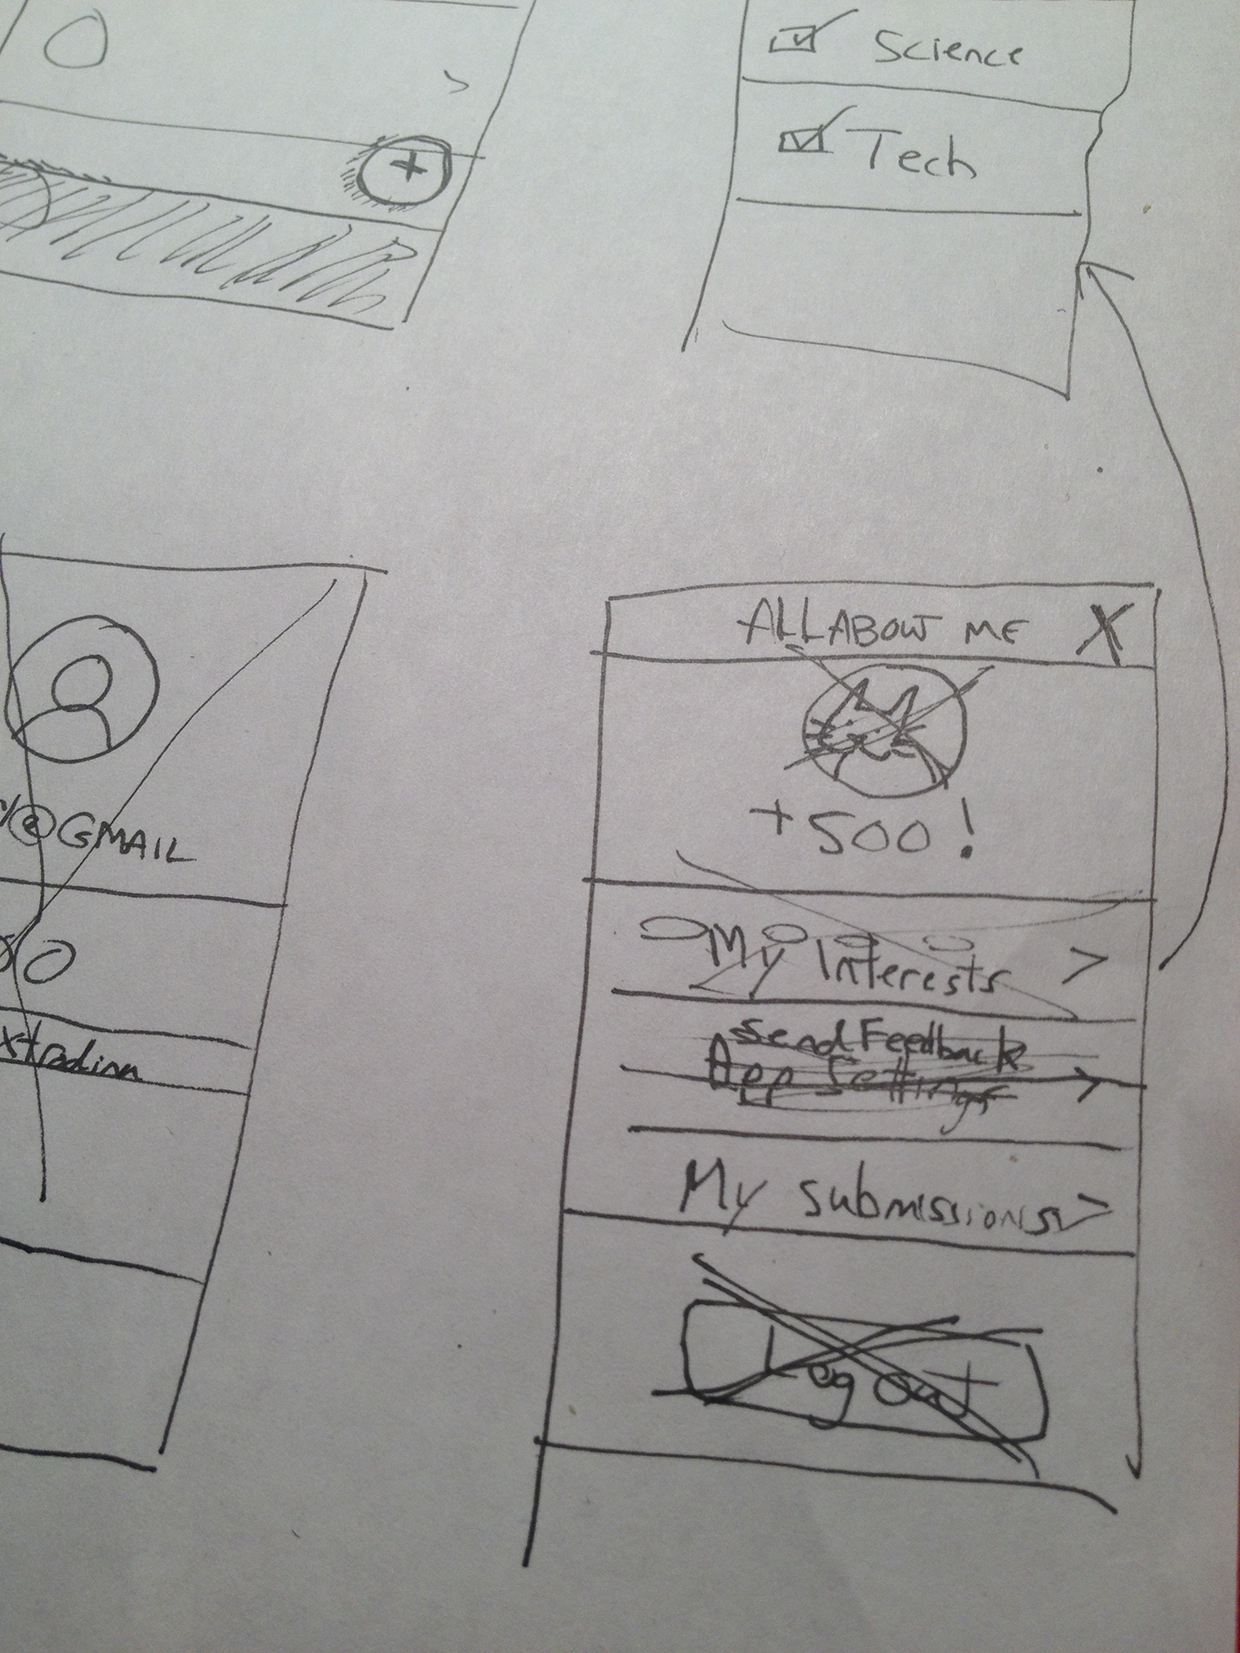 Science
Tech
+
@GMAIL
ALL ABOUT ME X
+500!
My Interests >
Send Feedback
App Settings >
My submissions >
Log out